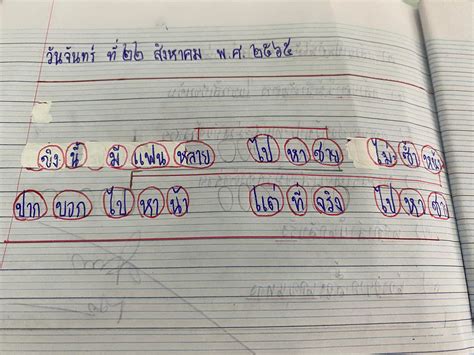 วันจันทร์ ที่ ๒๒ สิงหาคม พ.ศ. ๒๕๖๕
ขิงนี้ มีแฟนหลาย ไปหาชาย ไม่ซ้ำหน้า
ปากบอกไปหาน้า แต่ที่จริง ไปหา